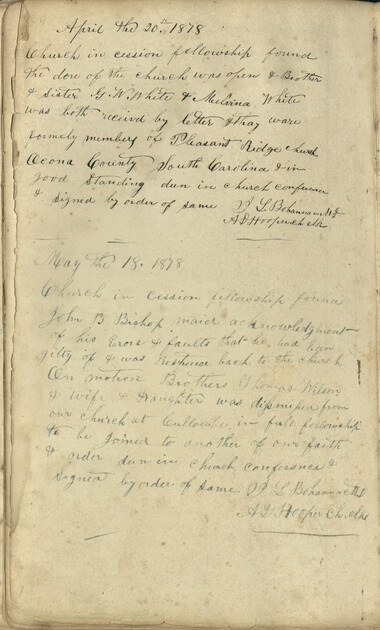 April the 20th 1878
Church in cession fellowship found
the dore of the church was open & Brother
& Sister G. W. White & Melvina White
was both receivd by letter & thay ware
formely members of Pleasant Ridge church
Ocona County South Carolina & in
good Standing dun in church conference
& Signed by order of same J L Bohannan Mo
A D Hooper ch clk
May the 18. 1878
Church in cession fellowship found
John B Bishop maid acknowledgment
of his Erors & faults that he had bean
gilty of & was back to the church
On motion Brothers Thomas Wilson
& wife & Daughter was dismissen from
our church at in full fellowship
to be Joined to another of our faith
& order dun in church conference &
Signed by order of same J L Bohannan Mo
A D Hooper Ch. clk